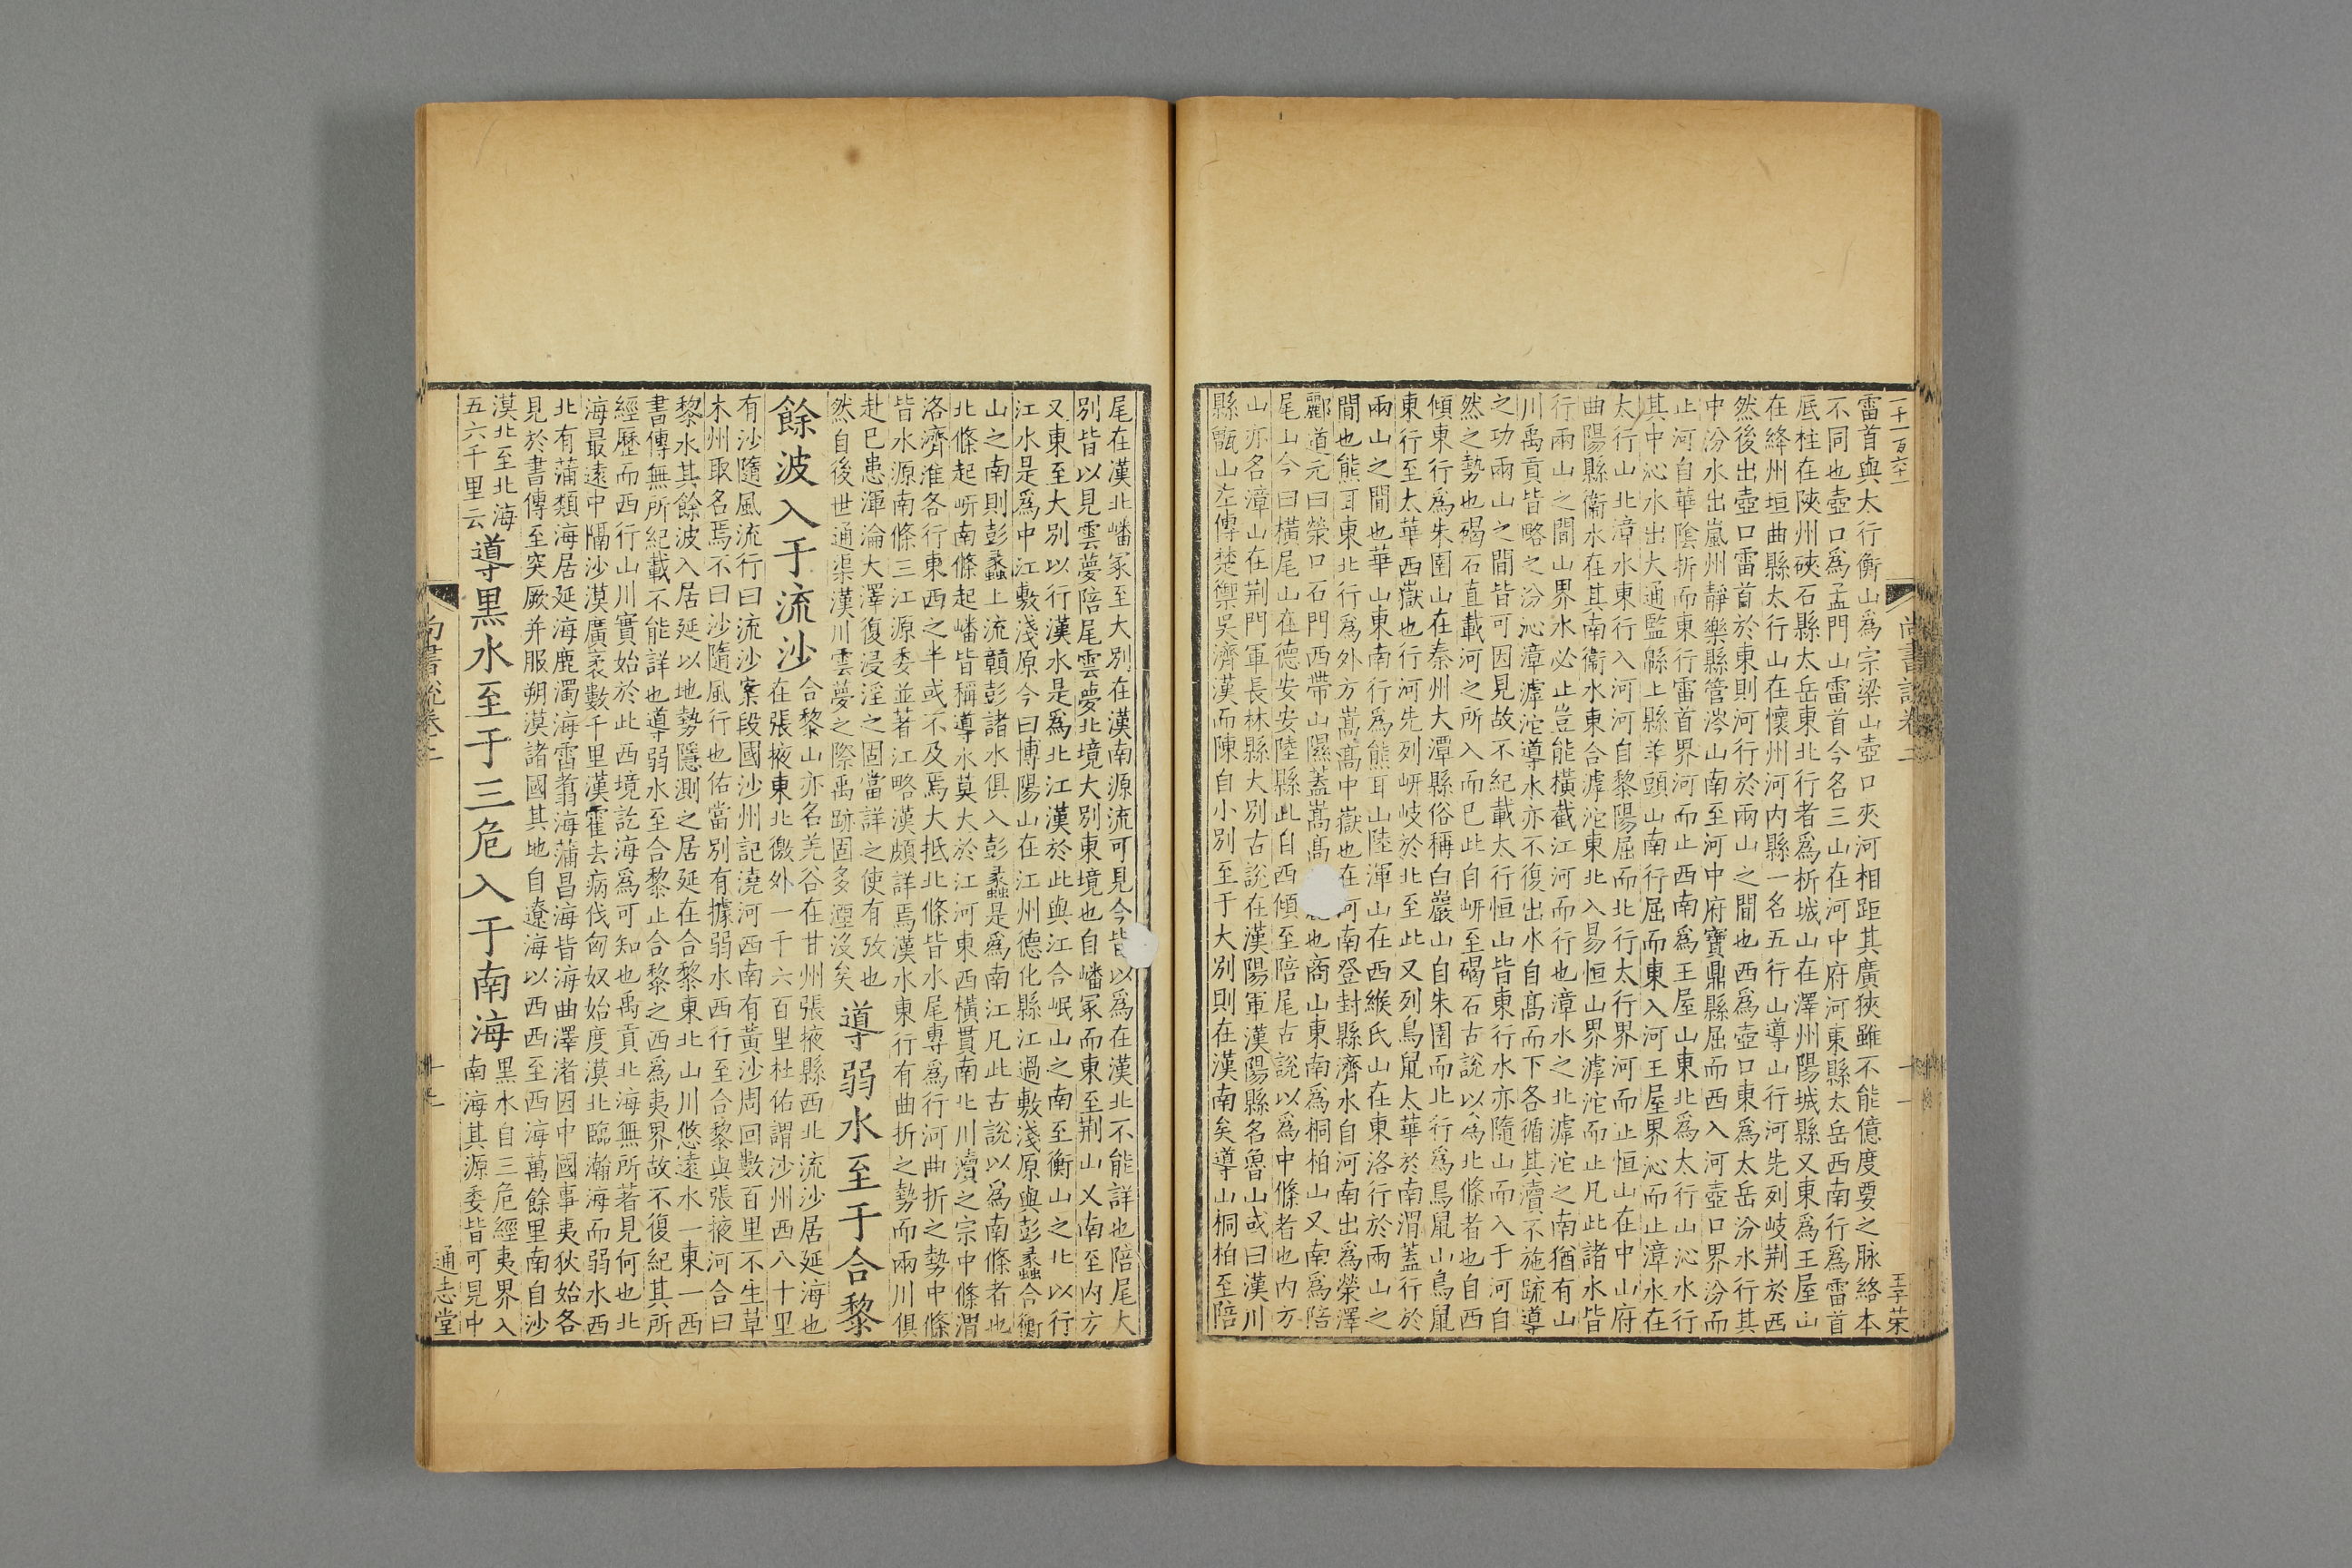 雷首與太行衡山爲宗梁山壺口夾河相距其廣狹雖不能億度要之脉絡本
不同也壺口爲孟門山雷首今名三山在河中府河東縣太岳西南行爲雷首
底柱在陝州硤石縣太岳東北行者爲析城山在澤州陽城縣又東爲王屋山
在絳州垣曲縣太行山在懷州河内縣一名五行山導山行河先列岐荆於西
然後出壺口雷首於東則河行於兩山之間也西爲壺口東爲太岳汾水行其
中汾水出嵐州靜樂縣管涔山南至河中府寶鼎縣屈而西入河壺口界汾而
止河自華陰折而東行雷首界河而止西南爲王屋山東北爲太行山沁水行
其中沁水出大通監緜上縣羊頭山南行屈而東入河王屋界沁而止漳水在
太行山北漳水東行入河河自黎陽屈而北行太行界河而止恒山在中山府
曲陽縣衞水在其南衞水東合滹沱東北入易恒山界滹沱而止凡此諸水皆
行兩山之間山界水必止豈能橫截江河而行也漳水之北滹沱之南猶有山
川禹貢皆略之汾沁漳滹沱導水亦不復出水自高而下各循其瀆不施疏導
之功兩山之間皆可因見故不紀載太行恒山皆東行水亦隨山而入于河自
然之勢也碣石直載河之所入而已此自岍至碣石古說以爲北條者也自西
傾東行爲朱圉山在秦州大潭縣俗稱白巖山自朱圉而北行爲鳥鼠山鳥鼠
東行至太華西嶽也行河先列岍岐於北至此又列鳥鼠太華於南渭蓋行於
兩山之間也華山東南行爲熊耳山陸渾山在西緱氏山在東洛行於兩山之
間也熊耳東北行爲外方嵩高中嶽也在河南登封縣濟水自河南出爲滎澤
酈道元曰滎口石門西帶山隰蓋嵩高麓也商山東南爲桐柏山又南爲陪
尾山今曰橫尾山在德安安陸縣此自西傾至陪尾古說以爲中條者也内方
山亦名漳山在荆門軍長林縣大別古說在漢陽軍漢陽縣名魯山或曰漢川
縣甑山左傳楚禦吳濟漢而陳自小別至于大別則在漢南矣導山桐柏至陪
一千一百六十一
尚書說卷二
十一
王子茱
尾在漢北嶓冢至大別在漢南源流可見今皆以爲在漢北不能詳也陪尾大
別皆以見雲夢陪尾雲夢北境大別東境也自嶓冢而東至荆山又南至内方
又東至大別以行漢水是爲北江漢於此與江合岷山之南至衡山之北以行
江水是爲中江敷淺原今曰博陽山在江州德化縣江過敷淺原與彭蠡合衡
山之南則彭蠡上流贛彭諸水俱入彭蠡是爲南江凡此古說以爲南條者也
北條起岍南條起嶓皆稱導水莫大於江河東西橫貫南北川瀆之宗中條渭
洛濟淮各行東西之半或不及焉大抵北條皆水尾專爲行河曲折之勢中條
皆水源南條三江源委並著江略漢頗詳焉漢水東行有曲折之勢而兩川俱
赴巴患渾淪大澤復浸淫之固當詳之使有攷也
然自後世通渠漢川雲夢之際禹跡固多湮沒矣 導弱水至于合黎
餘波入于流沙 合黎山亦名羌谷在甘州張掖縣西北流沙居延海也
在張掖東北徼外一千六百里杜佑謂沙州西八十里
有沙隨風流行曰流沙案段國沙州記澆河西南有黃沙周回數百里不生草
木州取名焉不曰沙隨風行也佑當別有據弱水西行至合黎與張掖河合曰
黎水其餘波入居延以地勢隱測之居延在合黎東北山川悠遠水一東一西
書傳無所紀載不能詳也導弱水至合黎止合黎之西爲夷界故不復紀其所
經歷而西行山川實始於此西境訖海爲可知也禹貢北海無所著見何也北
海最遠中隔沙漠廣袤數千里漢霍去病伐匈奴始度漠北臨瀚海而弱水西
北有蒲類海居延海鹿濁海雷翥海蒲昌海皆海曲澤渚因中國事夷狄始各
見於書傳至突厥并服朔漠諸國其地自遼海以西西至西海萬餘里南自沙
漠北至北海
五六千里云 導黑水至于三危入于南海 黑水自三危經夷界入
南海其源委皆可見中
尚書說卷二
十一
通志堂